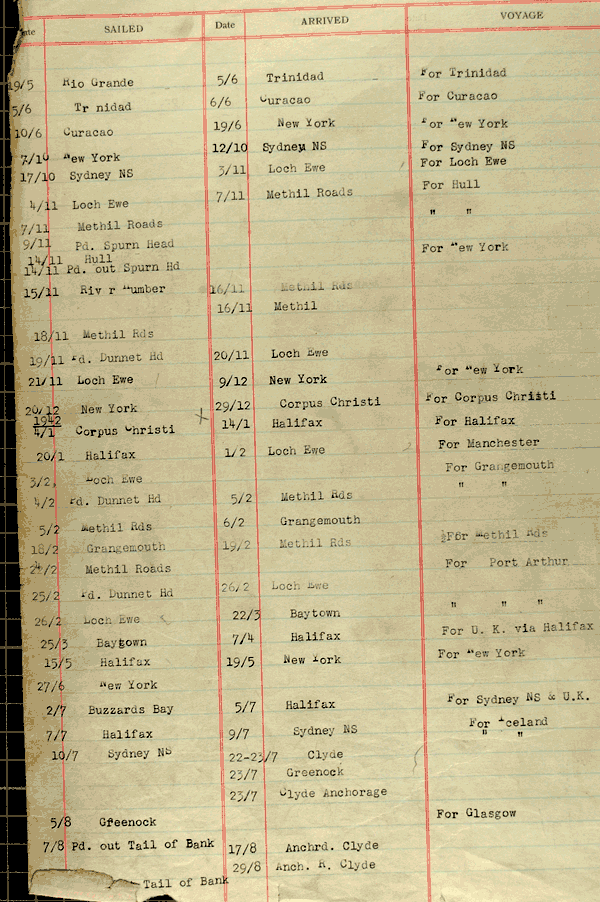 SAILED Date ARRIVED VOYAGE
19/5 Rio Grande 5/6 Trinidad For Trinidad
5/6 Tr nidad 6/6 Curacao For Curacao
10/6 Curacao 19/6 New York For New York
7/10 New York 12/10 Sydney NS For Sydney NS
17/10 Sydney NS 3/11 Loch Ewe For Loch Ewe
4/11 Loch Ewe 7/11 Methil Roads For Hull
7/11 Methil Roads " "
9/11 Pd. Spurn Head For New York
14/11 Hull
14/11 Pd. out Spurn Hd
15/11 Riv r Humber 16/11 Methil Rds
16/11 Methil
18/11 Methil Rds
19/11 Pd. Dunnet Hd 20/11 Loch Ewe
21/11 Loch Ewe 9/12 New York For New York
20/12 New York 29/12 Corpus Christi For Corpus Christi
1942
4/1 Corpus Christi 14/1 Halifax For Halifax
20/1 Halifax 1/2 Loch Ewe For Manchester
3/2, Loch Ewe For Grangemouth
4/2 Pd. Dunnet Hd 5/2 Methil Rds " "
5/2 Methil Rds 6/2 Grangemouth
18/2 Grangemouth 19/2 Methil Rds For Methil Rds
24/2 Methil Roads For Port Arthur
25/2 Pd. Dunnet Hd 26/2 Loch Ewe
26/2 Loch Ewe 22/3 Baytown " " "
25/3 Baytown 7/4 Halifax For U. K. via Halifax
15/5 Halifax 19/5 New York For New York
27/6 New York
2/7 Buzzards Bay 5/7 Halifax For Sydney NS & U.K.
7/7 Halifax 9/7 Sydney NS For Iceland
10/7 Sydney NS 22-23/7 Clyde " "
23/7 Greenock
23/7 Clyde Anchorage
5/8 Greenock For Glasgow
7/8 Pd. out Tail of Bank 17/8 Anchrd. Clyde
29/8 Anch. R. Clyde
Tail of Bank